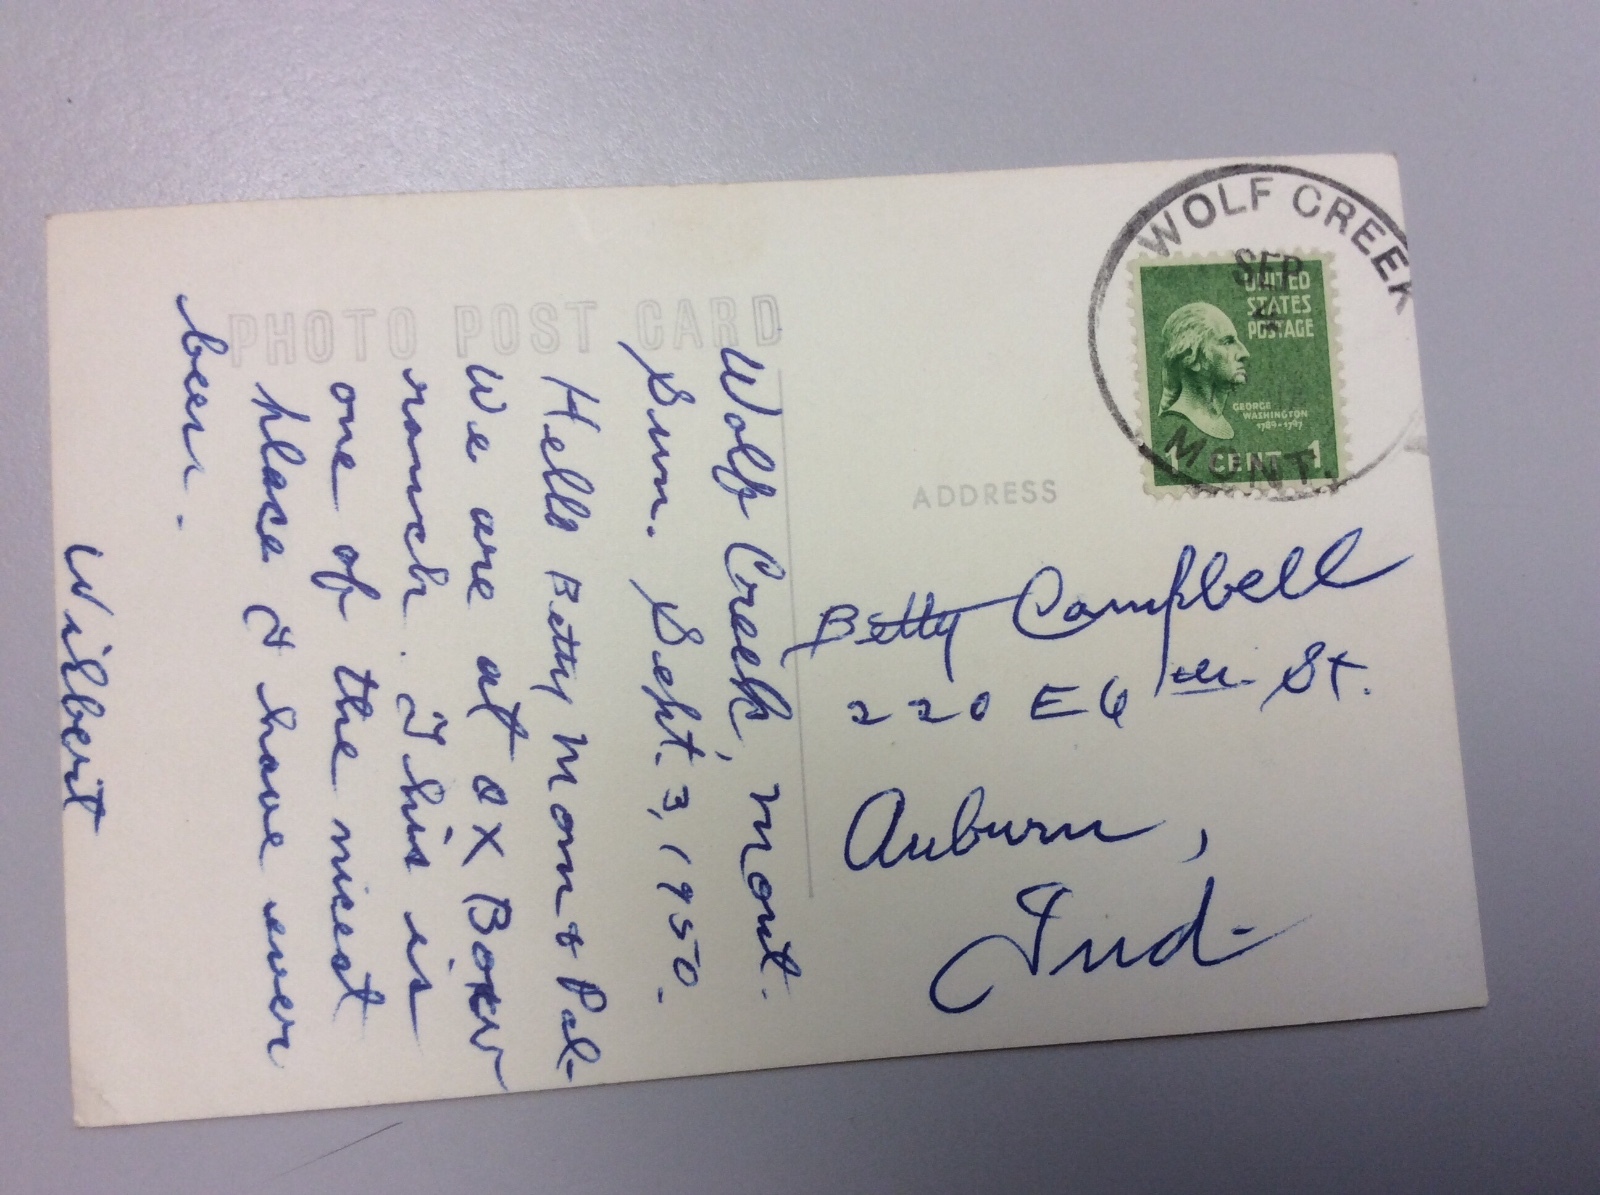 PHOTO POST CARD
Wolf Creek, Mont.
Sun. Sept. 3, 1950.
Hello Betty Mom & Pal-
We are at OX Bow
ranch. This is
one of the nicest
place I have ever
been.
Wilbert
WOLF CREEK
SEP
MONT.
UNITED
STATES
POSTAGE
GEORGE
WASHINGTON
1789-1797
1 CENT 1
ADDRESS
Betty Campbell
220 E 9 St.
Auburn,
Ind.